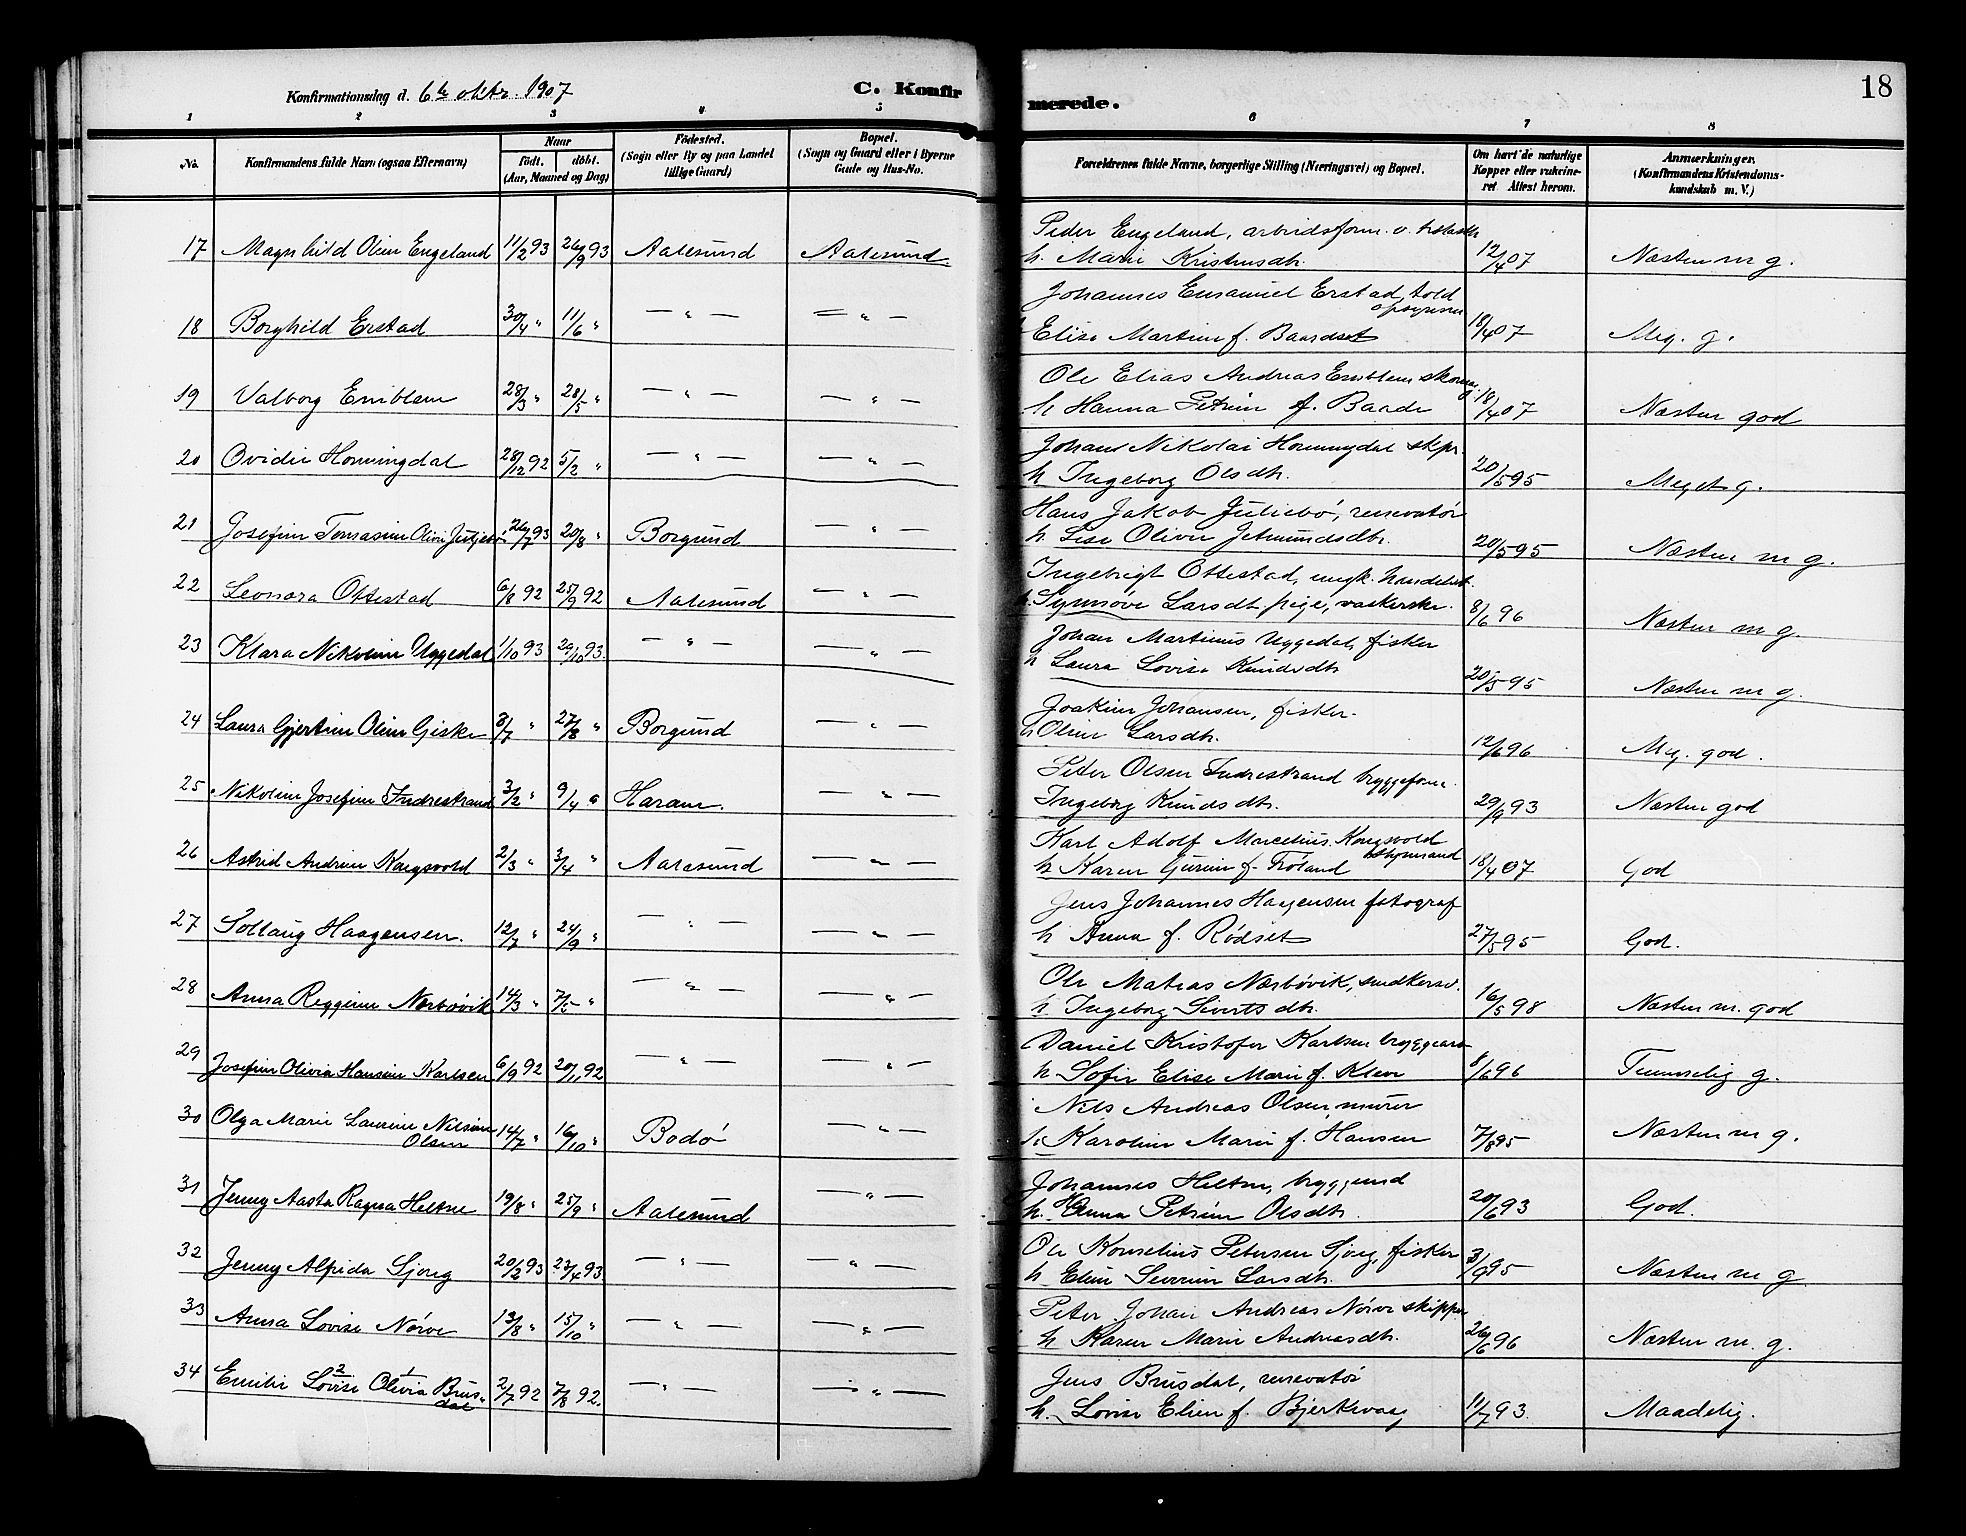 18
Konfirmationsdag d. 6te oktr. 1907 C. Konfirmerede.
1 2 3 4 5 6 7 8
No. Konfirmandens fulde Navn (ogsaa Efternavn) Naar födt. döbt. (Aar, Maaned og Dag) Födested. (Sogn eller By og paa Landet tillige Gaard) Bopæl. (Sogn og Gaard eller i Byerne Gade og Hus-No. Forældrenes fulde Navne, borgerlige Stilling (Næringsvei) og Bopæl. Om havt de naturlige Kopper eller vakcineret Attest herom. Anmærkninger. (Konfirmandens Kristendomskundskab m. V.)
Peder Engeland, arbeidsform. v.
17 Magnhild Oline Engeland 11/2 93 26/9 93 Aalesund Aalesund h. Marie Kristensdtr. 12/4 07 Næsten m g.
Johannes Emanuel Erstad, told
opsynsm
18 Borghild Erstad 30/4 " 11/6 " — " — — " — Elise Martine f. Baardset 18/4 07 Meg. g.
Ole Elias Andreas Emblem skomag.
19 Valborg Emblem 28/3 " 28/5 " — " — — " — h Hanna Petrine f. Baade 18/4 07 Næsten god
Johan Nikolai Honningdal skpr.
20 Ovidie Honningdal 28/12 92 5/2 " — " — — " — h Ingeborg Olsdtr. 20/5 95 Meget g.
Hans Jakob Juliebö, renovatör
21 Josefine Tomasine Olivie Juljebö 26/7 93 20/8 " Borgund — " — h Lise Olivie Jetmundsdtr. 20/5 95 Næsten m g.
Ingebrigt Ottestad, ungk. handelsbt.
22 Leonora Ottestad 6/8 92 25/9 92 Aalesund — " — h. Synnöve Larsdtr. pige, vaskerske. 8/6 96 Næsten m g.
Johan Martinus Uggedal, fisker
23 Klara Nikoline Uggedal 1/10 93 29/10 93. — " — — " — h Laura Lovise Knudsdtr. 20/5 95 Næsten m g.
Joakim Johansen, fisker.
24 Laura Gjertine Oline Giske 3/7 " 27/8 " Borgund — " — h Oline Larsdtr. 12/6 96 Meg. god.
Peter Olsen Indrestrand bryggeform.
25 Nikoline Josefine Indrestrand 3/2 " 9/4 " Haram. — " — Ingeborg Knudsdtr. 29/9 93 Næsten god
Karl Adolf Marcelius Kongsvold
26 Astrid Andrine Kongsvold 2/3 " 3/4 " Aalesund — " — h Karen Gurine f. Fröland 18/4 07 God
Jens Johannes Haagensen fotograf
27 Solbaug Haagensen. 12/7 " 24/9 " — " — — " — h Anna f. Rödset 27/5 95 God.
Ole Matias Næsbövik, snedkersv.
28 Anna Reggine Næsbövik 14/3 " 7/5 " — " — — " — h Ingeborg Sivertsdtr. 16/5 98 Næsten m. god
Daniel Kristofer Karlsen bryggearb
29 Josefine Olivia Hansine Karlsen 6/9 92 20/11 92 — " — — " — h Sofie Elise Marie f. Kleve 8/6 96 Temmelig g.
Nils Andreas Olsen, murer
30 Olga Marie Laurine Nilsine
Olsen 14/7 " 16/10 " Bodö — " — h. Karoline Marie f. Hansen 7/8 95 Næsten m g.
Johannes Heltne, bryggemd
31 Jenny Aasta Ragna Heltne 19/8 " 25/9 " Aalesund — " — h. Anna Petrine Olsdtr. 20/6 93 God.
Ole Kornelius Petersen Sjong, fisker
32 Jenny Alfrida Sjong 20/2 93 23/4 93 — " — — " — h Eline Severine Larsdtr. 3/9 95 Næsten m g
Peter Johan Andreas Nörve skipper
33 Anna Lovise Nörve 13/8 " 15/10 " — " — — " — h Karen Marie Andreasdtr. 26/6 96 Næsten m. g.
Jens Brusdal, renovatör
34 Emilie Lovise 2 Olivia 1 Brus-
dal 2/7 92 7/8 92. — " — — " — h. Lovise Eline f. Bjerkevaag 11/7 93. Maadelig.